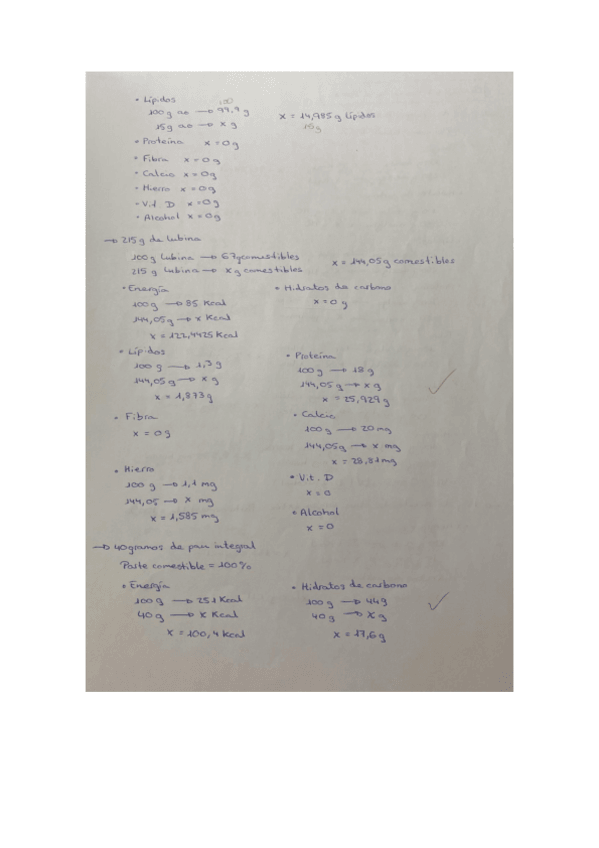 • Lípidos
100
100g ao → 99,9 g
15g ao → x g
x = 14,985 g Lípidos
• Proteína x = 0g
• Fibra x = 0g
• Calcio x = 0g
• Hierro x = 0g
• Vit. D x = 0g
• Alcohol x = 0g
→ 215g de lubina
100g lubina → 67g comestibles
215g lubina → x g comestibles
x = 144,05g comestibles
• Energía
100g → 85 Kcal
144,05g → x Kcal
x = 122,4425 Kcal
• Hidratos de carbono
x = 0 g
• Lípidos
100 g → 1,3 g
144,05g → x g
x = 1,873g
• Proteína
100g → 18 g
144,05g → x g
x = 25,929g
• Fibra
x = 0g
• Calcio
100g → 20 mg
144,05g → x mg
x = 28,81mg
• Hierro
100 g → 1,1 mg
144,05 → x mg
x = 1,585 mg
• Vit. D
x = 0
• Alcohol
x = 0
→ 40 gramos de pan integral
Parte comestible = 100%
• Energía
100g → 251 Kcal
40g → x Kcal
x = 100,4 kcal
• Hidratos de carbono
100g → 44g
40g → x g
x = 17,6g